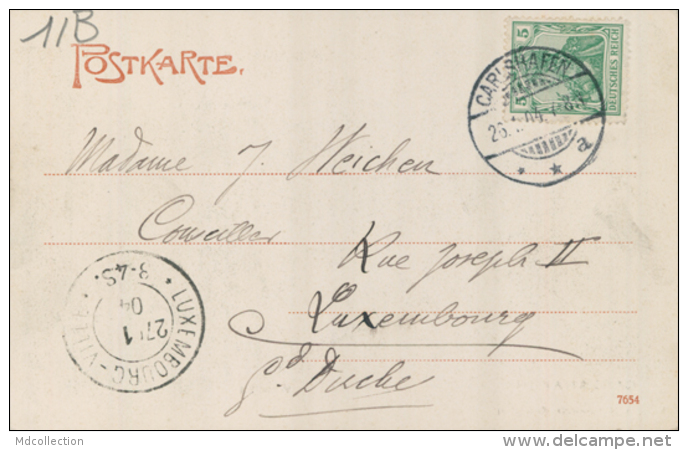 11B
POSTKARTE.
5 5 DEUTSCHES REICH
CARLSHAFEN
26.1.04. 7-8N
a
Madame J. Weicher
Conseiller
Rue Joseph II
Luxembourg
Gd Duché
LUXEMBOURG-VILLE
3-4S.
04
27 1
7654
Mdcollection
www.delcampe.net